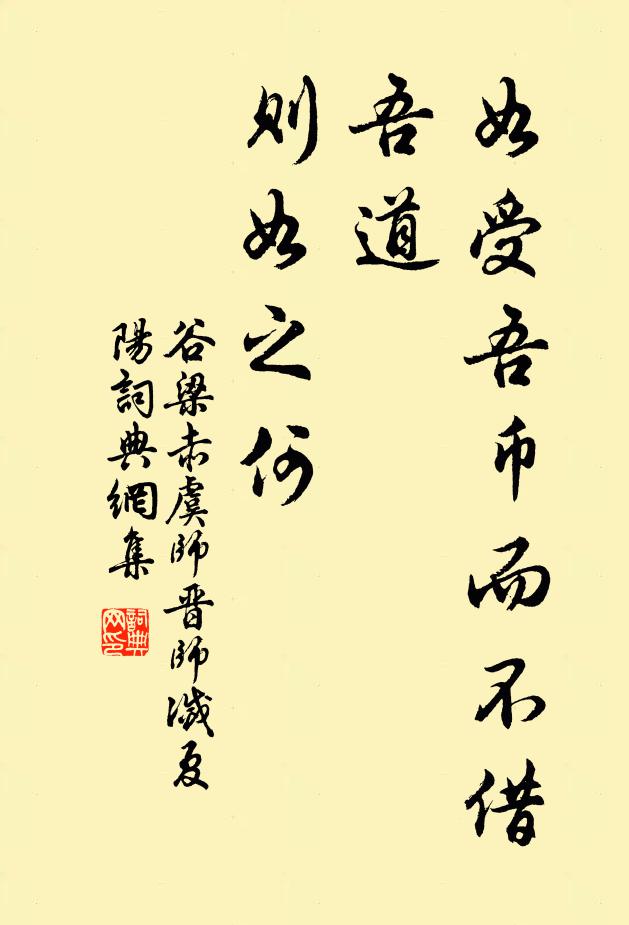 如受吾币而不借
吾道
则如之何
谷梁赤虞師晋師滅夏
陽詞典網集
詞典
网印